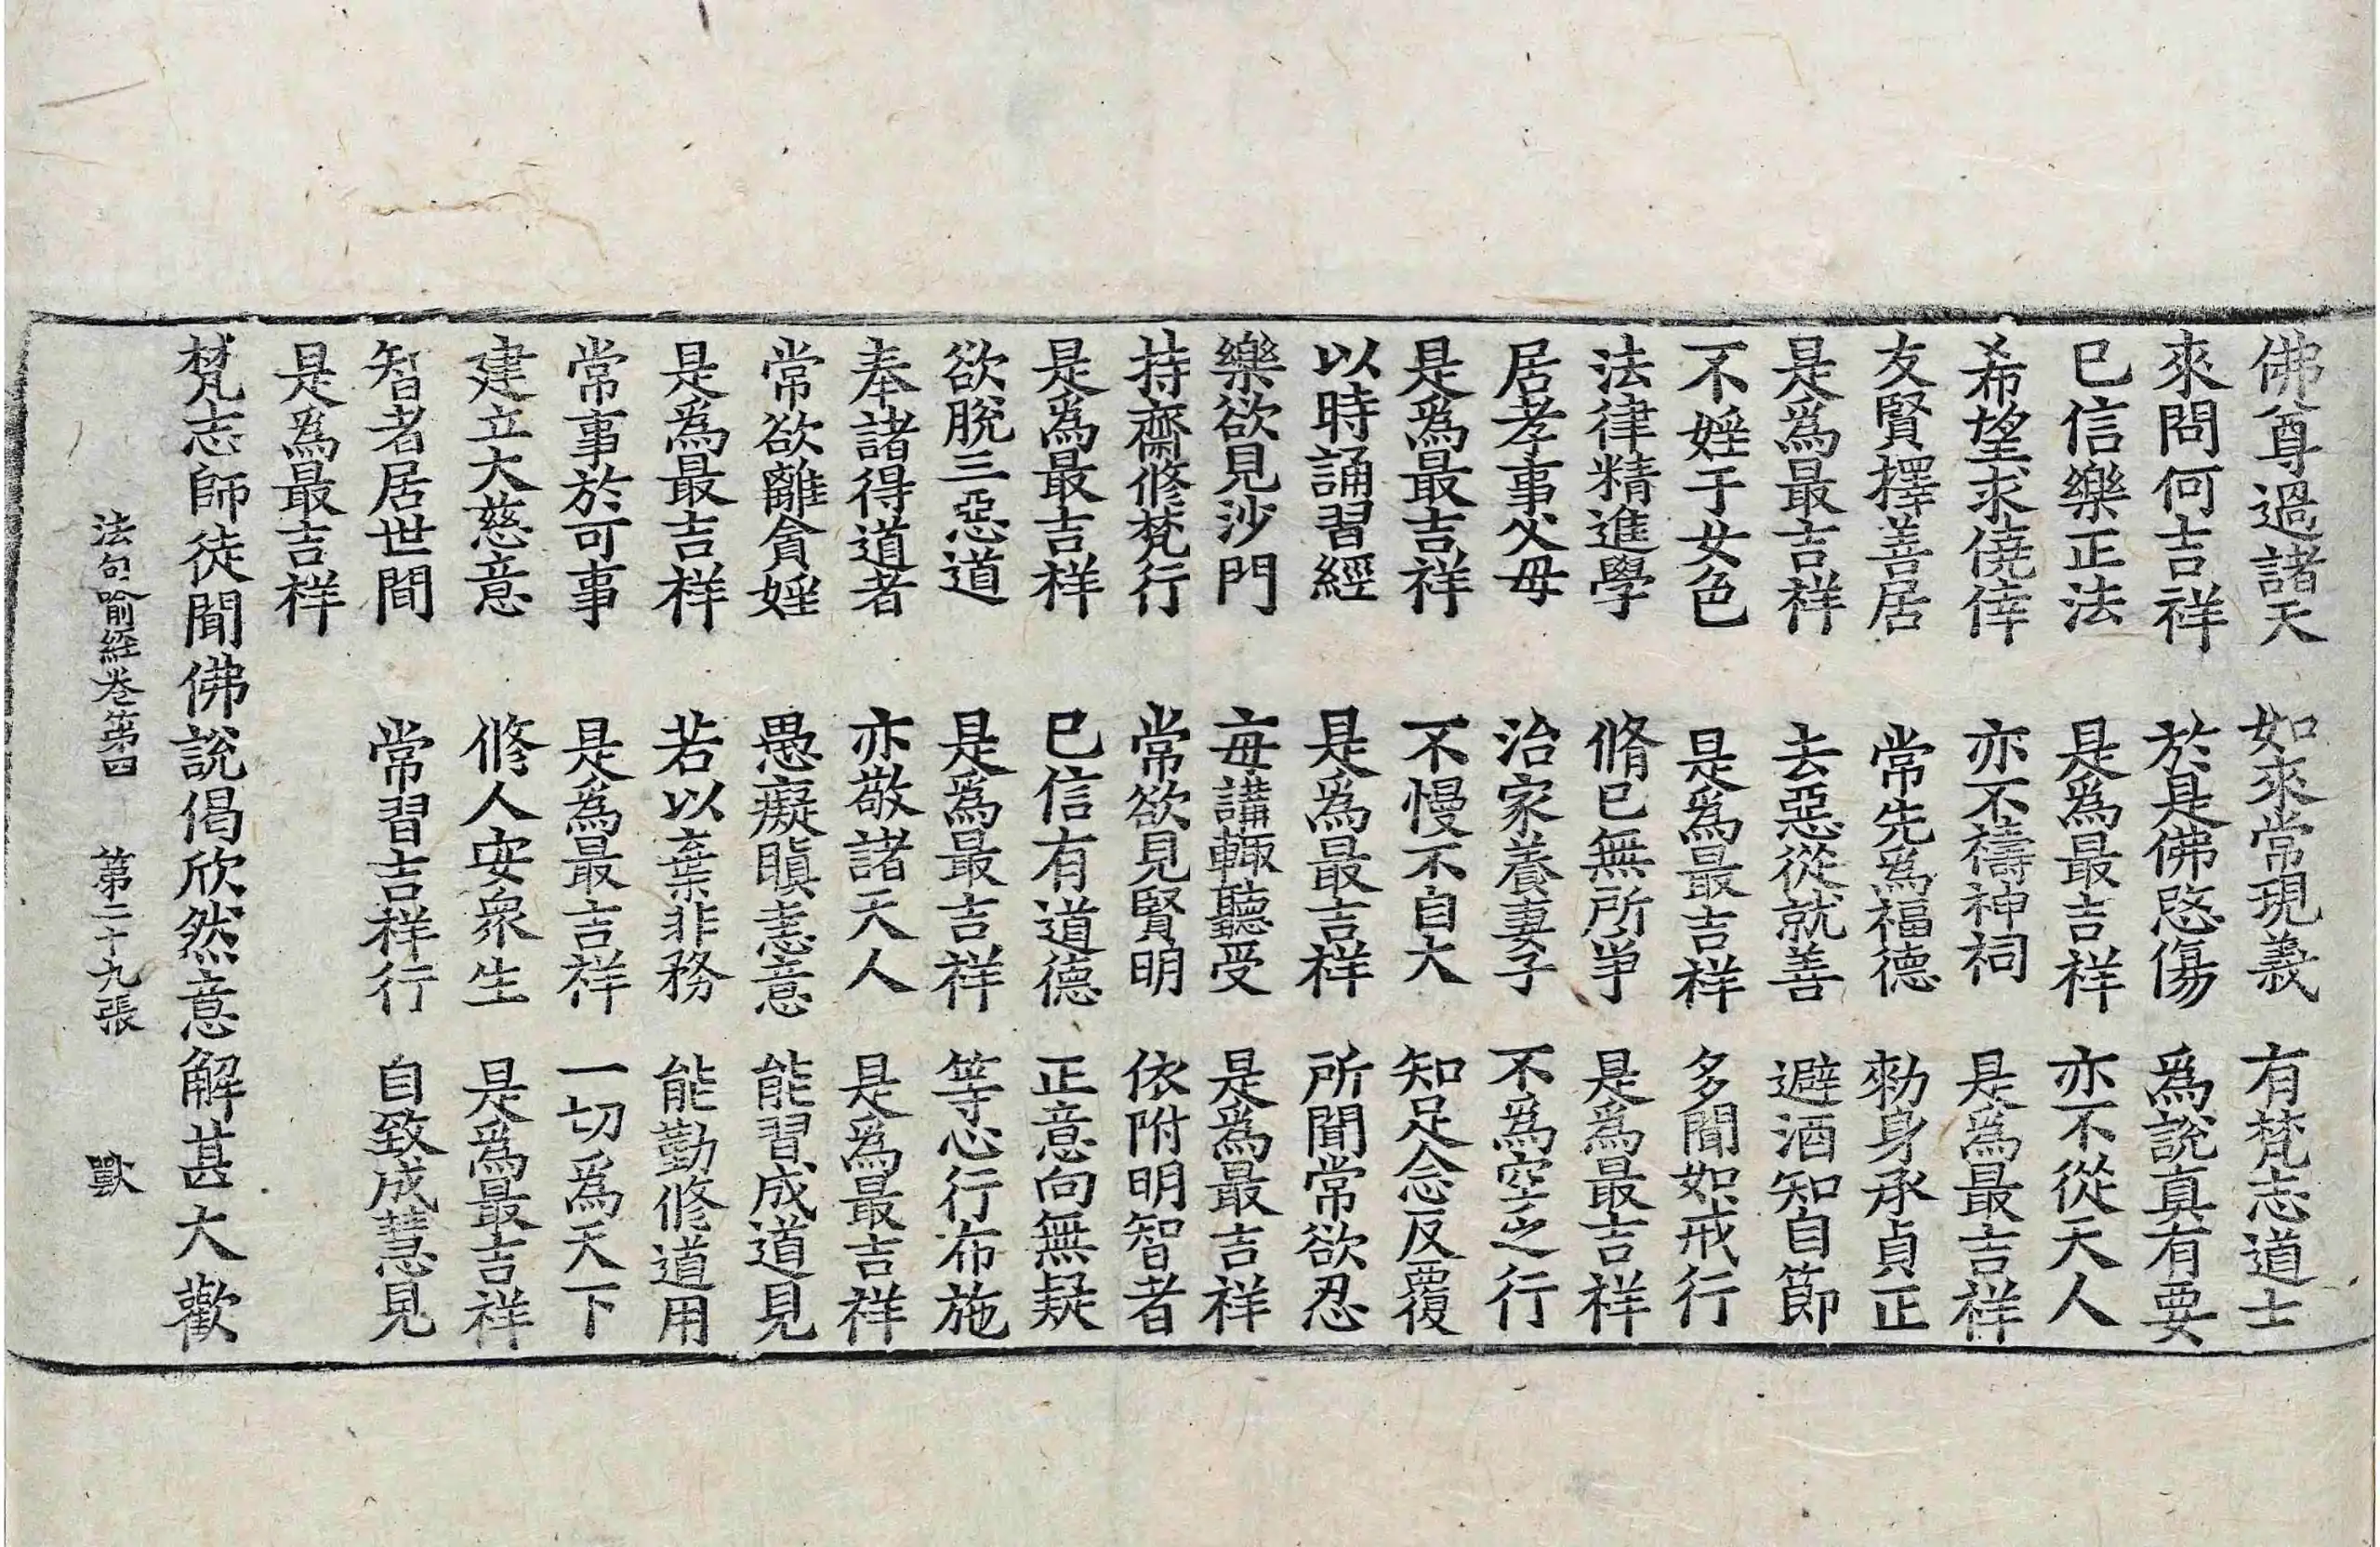 佛尊過諸天　如來常現義　有梵志道士
來問何吉祥　於是佛愍傷　爲說真有要
已信樂正法　是爲最吉祥　亦不從天人
希望求僥倖　亦不禱神祠　是爲最吉祥
友賢擇善居　常先爲福德　勑身承貞正
是爲最吉祥　去惡從就善　避酒知自節
不婬于女色　是爲最吉祥　多聞如戒行
法律精進學　脩已無所爭　是爲最吉祥
居孝事父母　治家養妻子　不爲空之行
是爲最吉祥　不慢不自大　知足念反覆
以時誦習經　是爲最吉祥　所聞常欲忍
樂欲見沙門　每講輒聽受　是爲最吉祥
持齋修梵行　常欲見賢明　依附明智者
是爲最吉祥　已信有道德　正意向無疑
欲脫三惡道　是爲最吉祥　等心行布施
奉諸得道者　亦敬諸天人　是爲最吉祥
常欲離貪婬　愚癡瞋恚意　能習成道見
是爲最吉祥　若以棄非務　能勤修道用
常事於可事　是爲最吉祥　一切爲天下
建立大慈意　修人安衆生　是爲最吉祥
智者居世間　常習吉祥行　自致成慧見
是爲最吉祥
梵志師徒聞佛說偈欣然意解甚大歡
法句喻經卷第四　第二十九張　獸